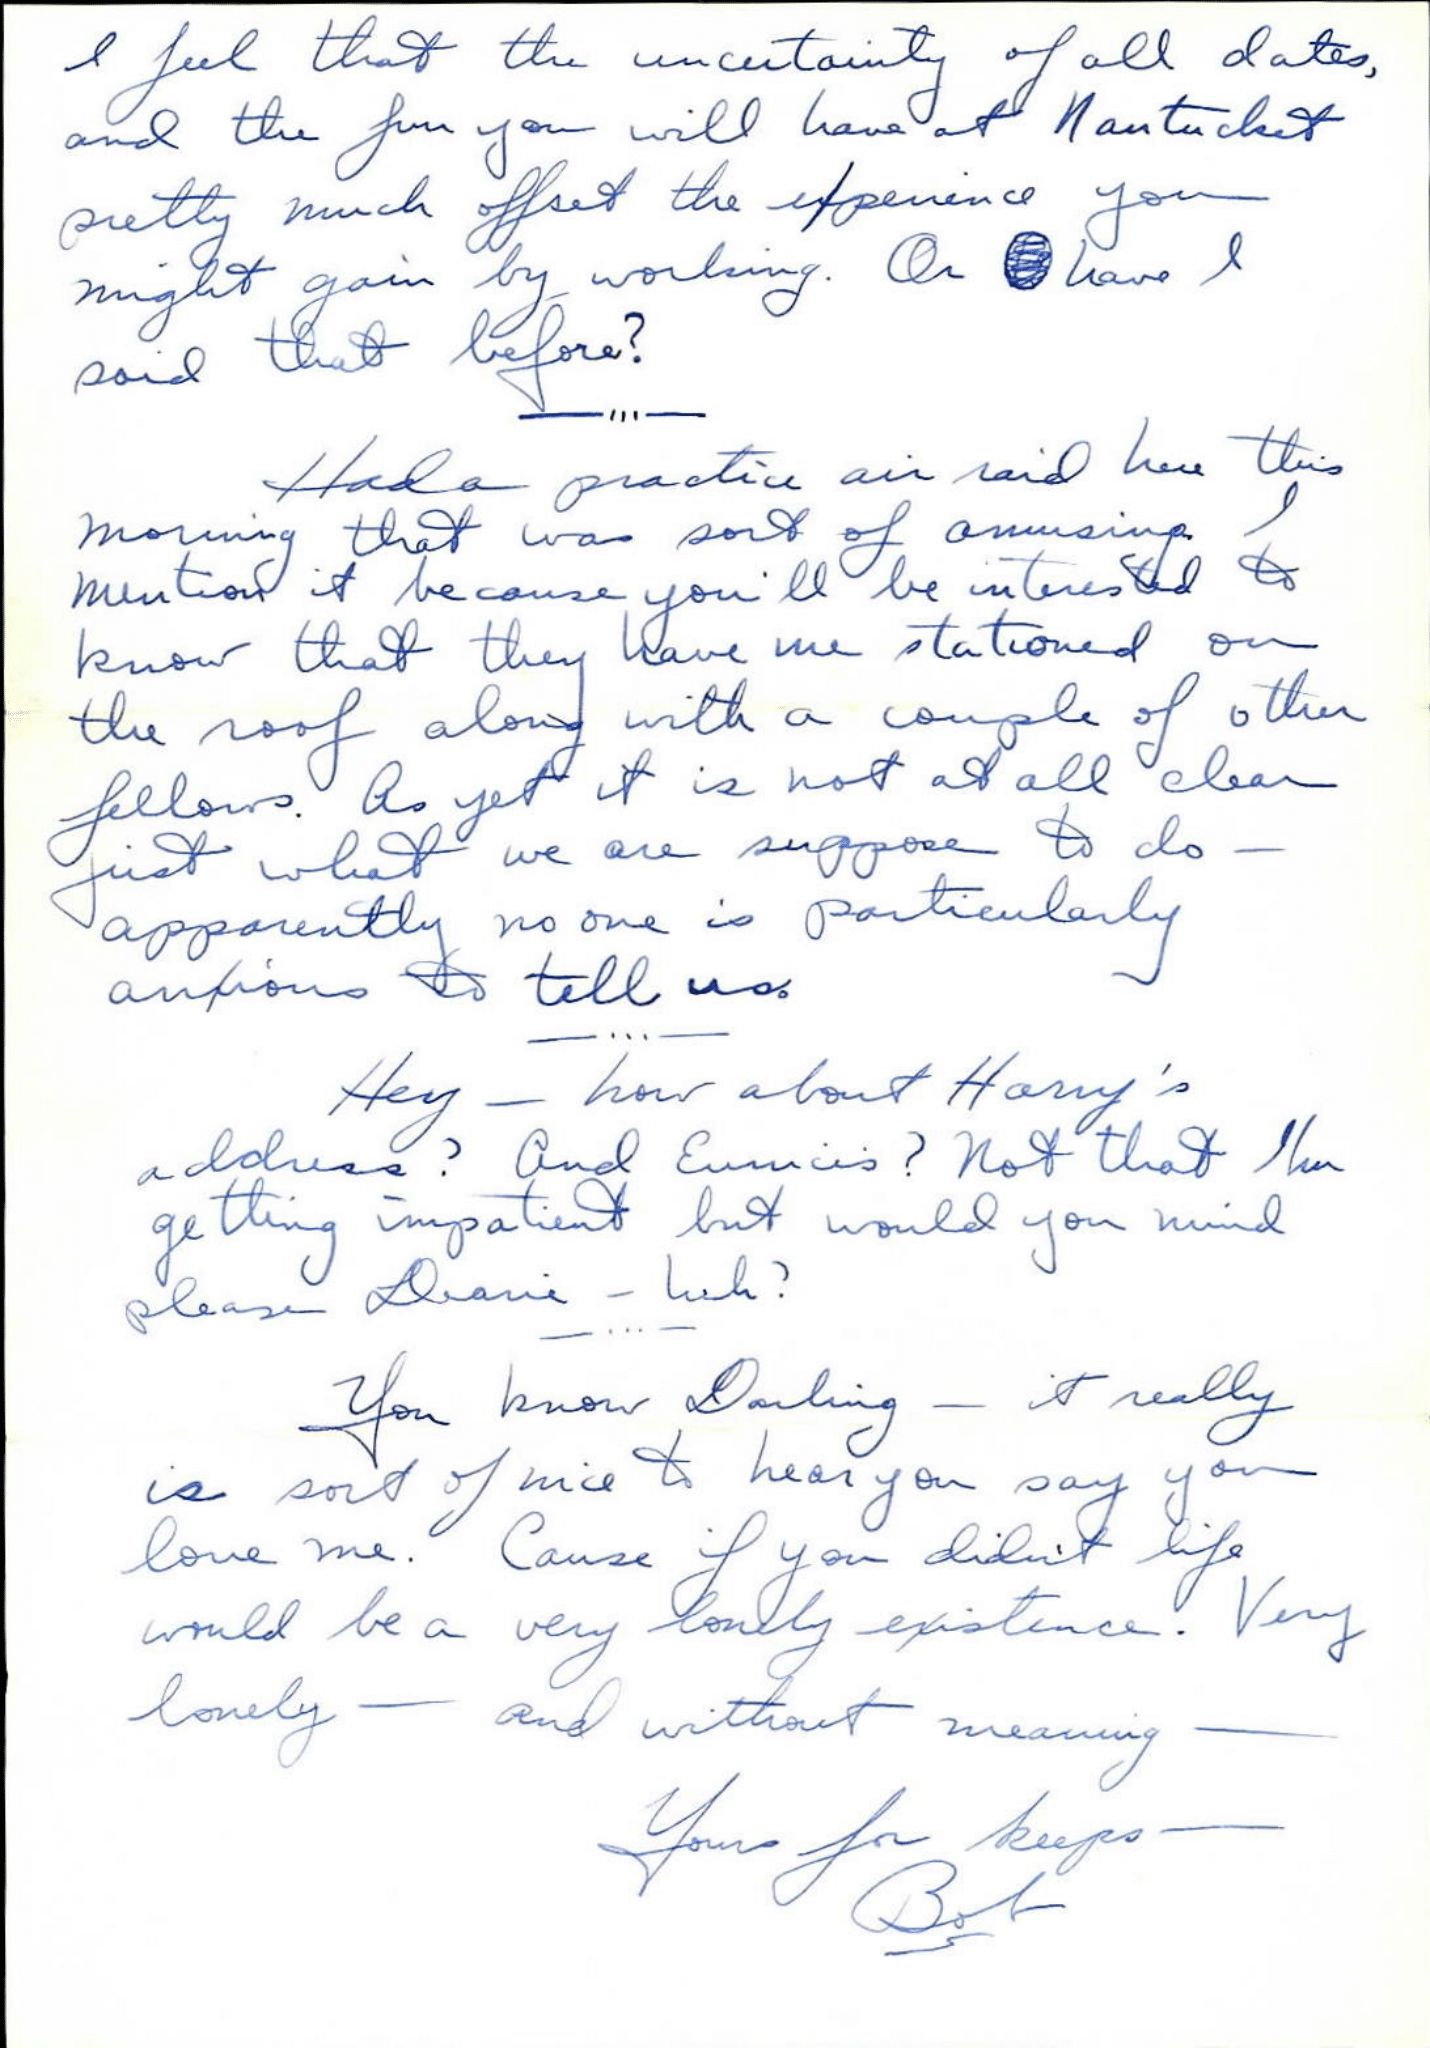 I feel that the uncertainty of all dates,
and the fun you will have at Nantucket
pretty much offset the experience you
might gain by working. Or have I
said that before?
Had a practice air raid here this
morning that was sort of amusing. I
mention it because you'll be interested to
know that they have me stationed on
the roof along with a couple of other
fellows. As yet it is not at all clear
just what we are suppose to do —
apparently no one is particularly
anxious to tell us.
Hey — how about Harry's
address? And Eunices? Not that I'm
getting impatient but would you mind
please Dearie – huh?
You know Darling — it really
is sort of nice to hear you say you
love me. Cause if you didn't life
would be a very lonely existence. Very
lonely — and without meaning —
Yours for keeps —
Bob